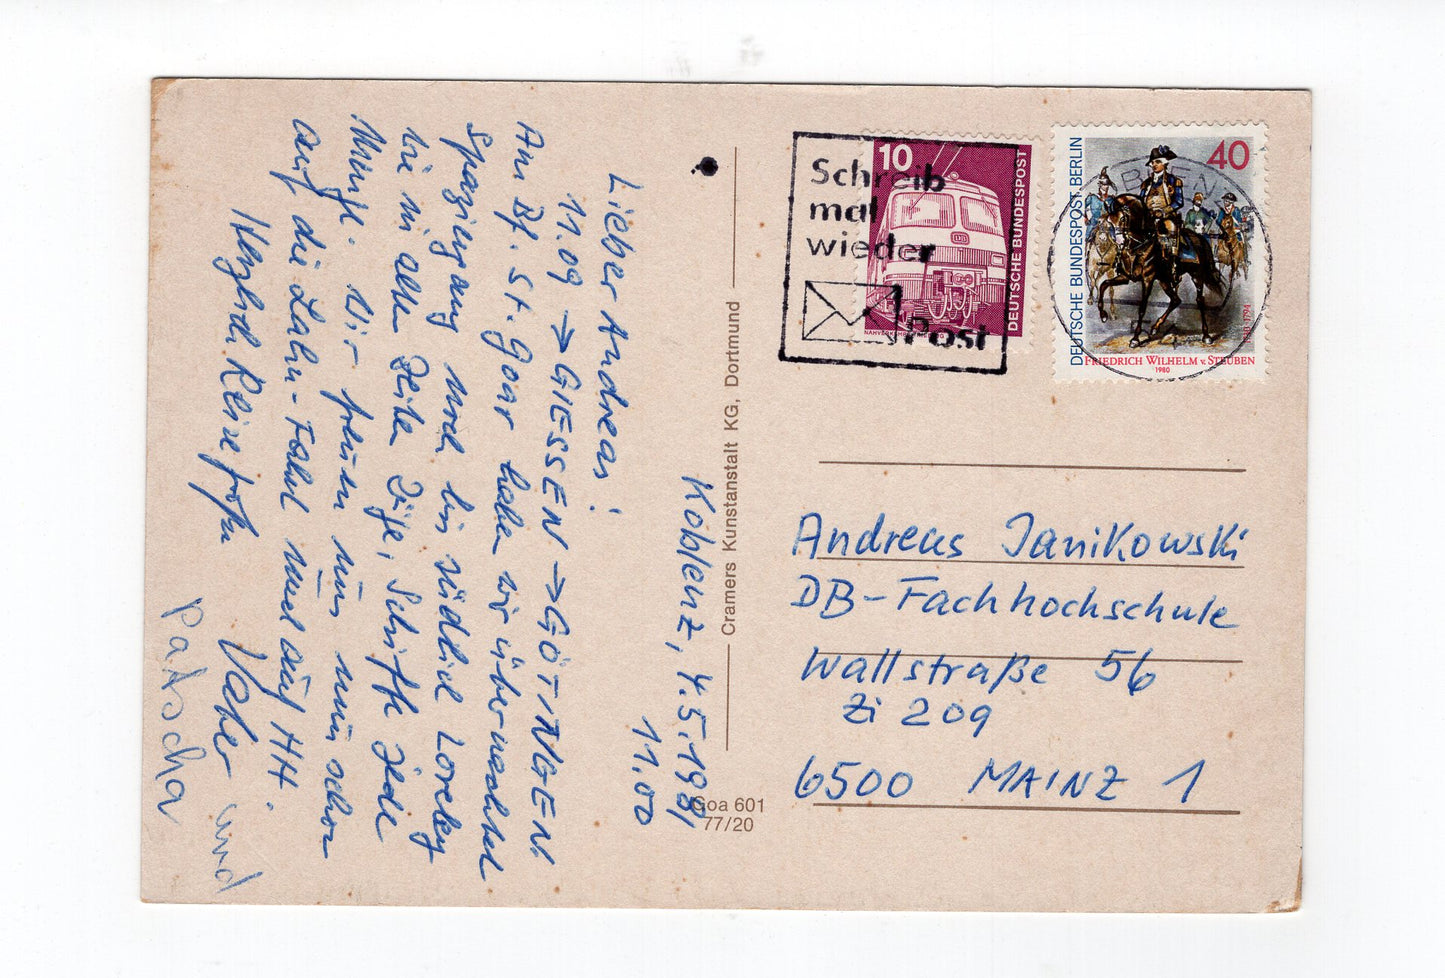 Koblenz, 4.5.1981
11.00
Lieber Andreas!
11.09 → GIESSEN → GÖTTINGEN.
Am Bf. St. Goar haben wir übernachtet
Spaziergang nach bis südlich Loreley
bis in alle Zeile Züge, Schiffe jede
Menge. Wir freuen uns nun schon
auf die Lahn-Fahrt und auf HH.
Herzliche Reisegrüße
Vater und
Patscha
Cramers Kunstanstalt KG, Dortmund
Goa 601
77/20
Schreib
mal
wieder
Post
10
DEUTSCHE BUNDESPOST
40
DEUTSCHE BUNDESPOST BERLIN
FRIEDRICH WILHELM v. STEUBEN
1980
Andreas Janikowski
DB-Fachhochschule
Wallstraße 56
Zi 209
6500 MAINZ 1